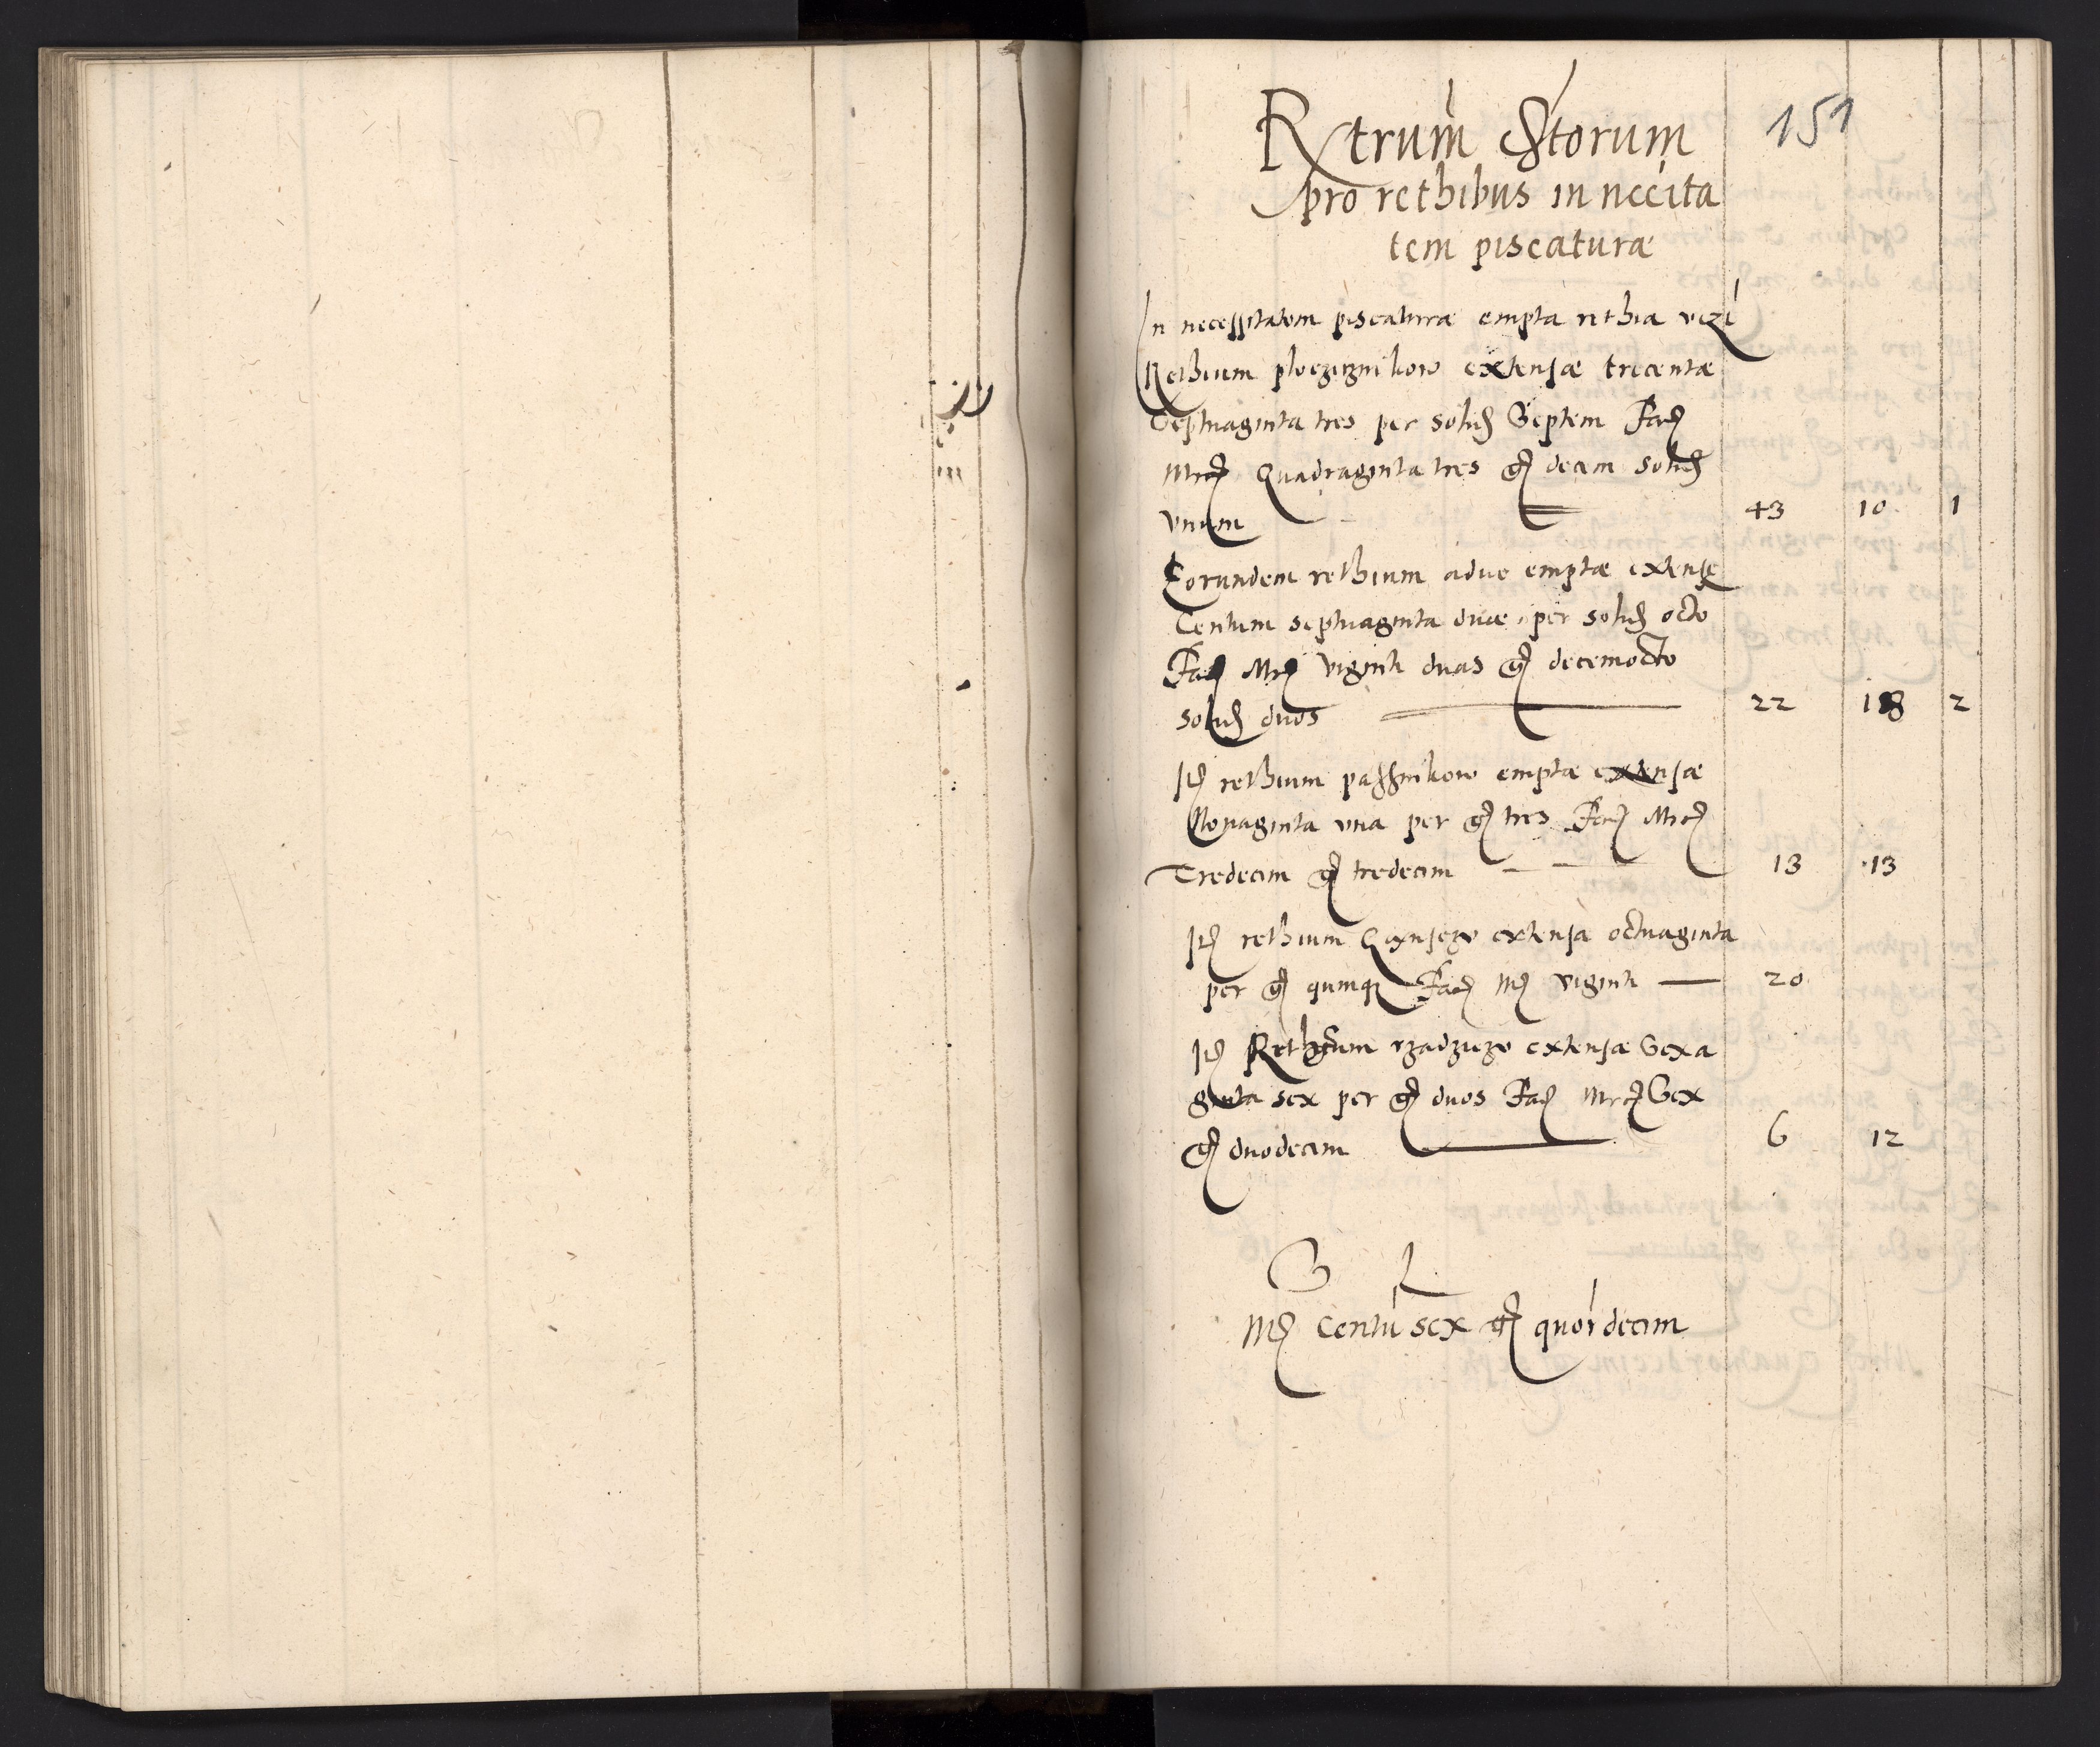 151
Rtrum Strorum
pro rethibus in nccita
tem piscaturæ
In necessitatem piscaturæ empta rethia vizt
Rethium ploczicznikow extensæ trecentæ
Septuaginta tres per solid Septem Facit
Mrc Quadraginta tres gr decem solid
Vnum 43 10 1
Eorundem rethium aduc emptæ extense
Centum septuaginta duæ per solid octo
Facit Mrc viginti duas gr decemocto
solid duos 22 18 2
Itt rethium emptæ extensæ
Nonaginta vna per gr tres Facit Mrc
Tredecim gr tredecim 13 13
Itt rethium extensæ octuaginta
per gr quinque Facit M viginti 20
Itt Rethium rzadzizo extensæ Sexa
ginta sex per gr duos Facit Mrc Sex
gr duodecim 6 12
S L
M centu sex gr quordecim